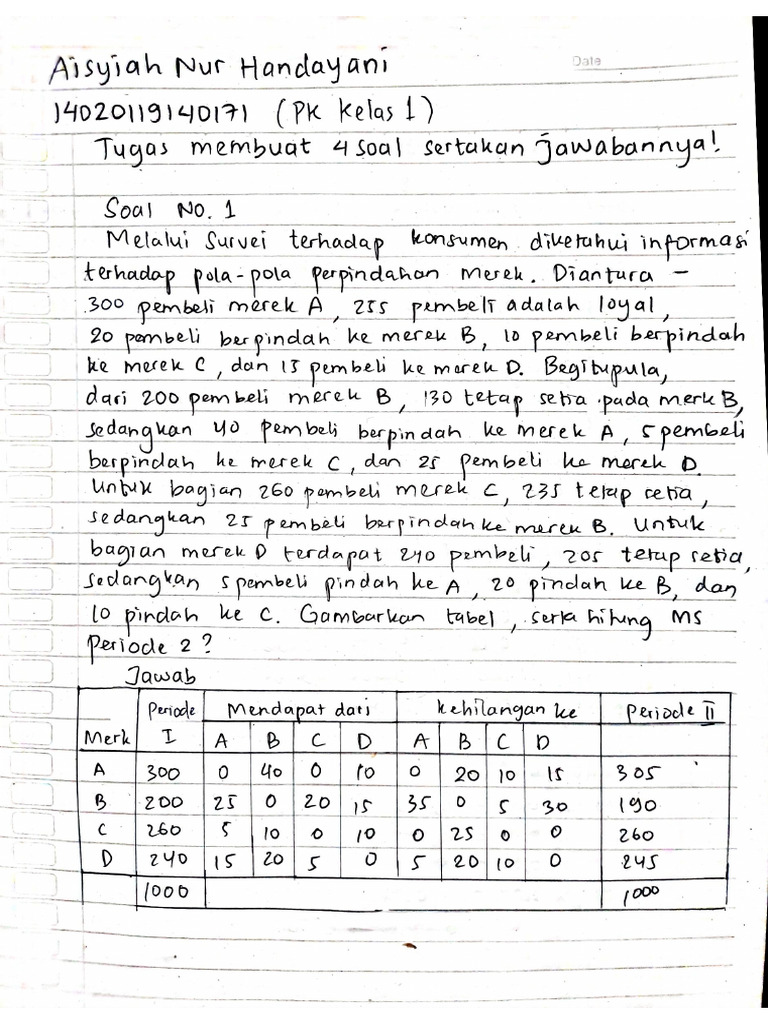 Date
Aisyiah Nur Handayani
14020119140171 (PK Kelas 1)
Tugas membuat 4 soal sertakan jawabannya!
Soal No. 1
Melalui Survei terhadap konsumen diketahui informasi
terhadap pola-pola perpindahan merek. Diantara -
300 pembeli merek A, 255 pembeli adalah loyal,
20 pembeli berpindah ke merek B, 10 pembeli berpindah
ke merek C, dan 15 pembeli ke merek D. Begitupula,
dari 200 pembeli merek B, 130 tetap setia pada merk B,
sedangkan 40 pembeli berpindah ke merek A, 5 pembeli
berpindah ke merek C, dan 25 pembeli ke merek D.
Untuk bagian 260 pembeli merek C, 235 tetap setia,
sedangkan 25 pembeli berpindah ke merek B. Untuk
bagian merek D terdapat 240 pembeli, 205 tetap setia,
sedangkan 5 pembeli pindah ke A, 20 pindah ke B, dan
10 pindah ke C. Gambarkan tabel, serta hitung MS
Periode 2?
Jawab
Merk Periode I Mendapat dari Kehilangan ke Periode II
A B C D A B C D
A 300 0 40 0 10 0 20 10 15 305
B 200 25 0 20 15 35 0 5 30 190
C 260 5 10 0 10 0 25 0 0 260
D 240 15 20 5 0 5 20 10 0 245
1000 1000